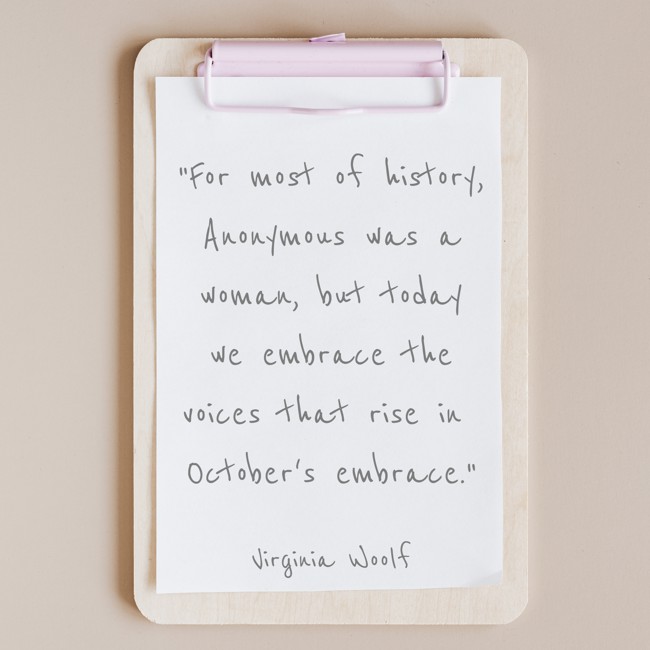 "For most of history,
Anonymous was a
woman, but today
we embrace the
voices that rise in
October's embrace."
Virginia Woolf